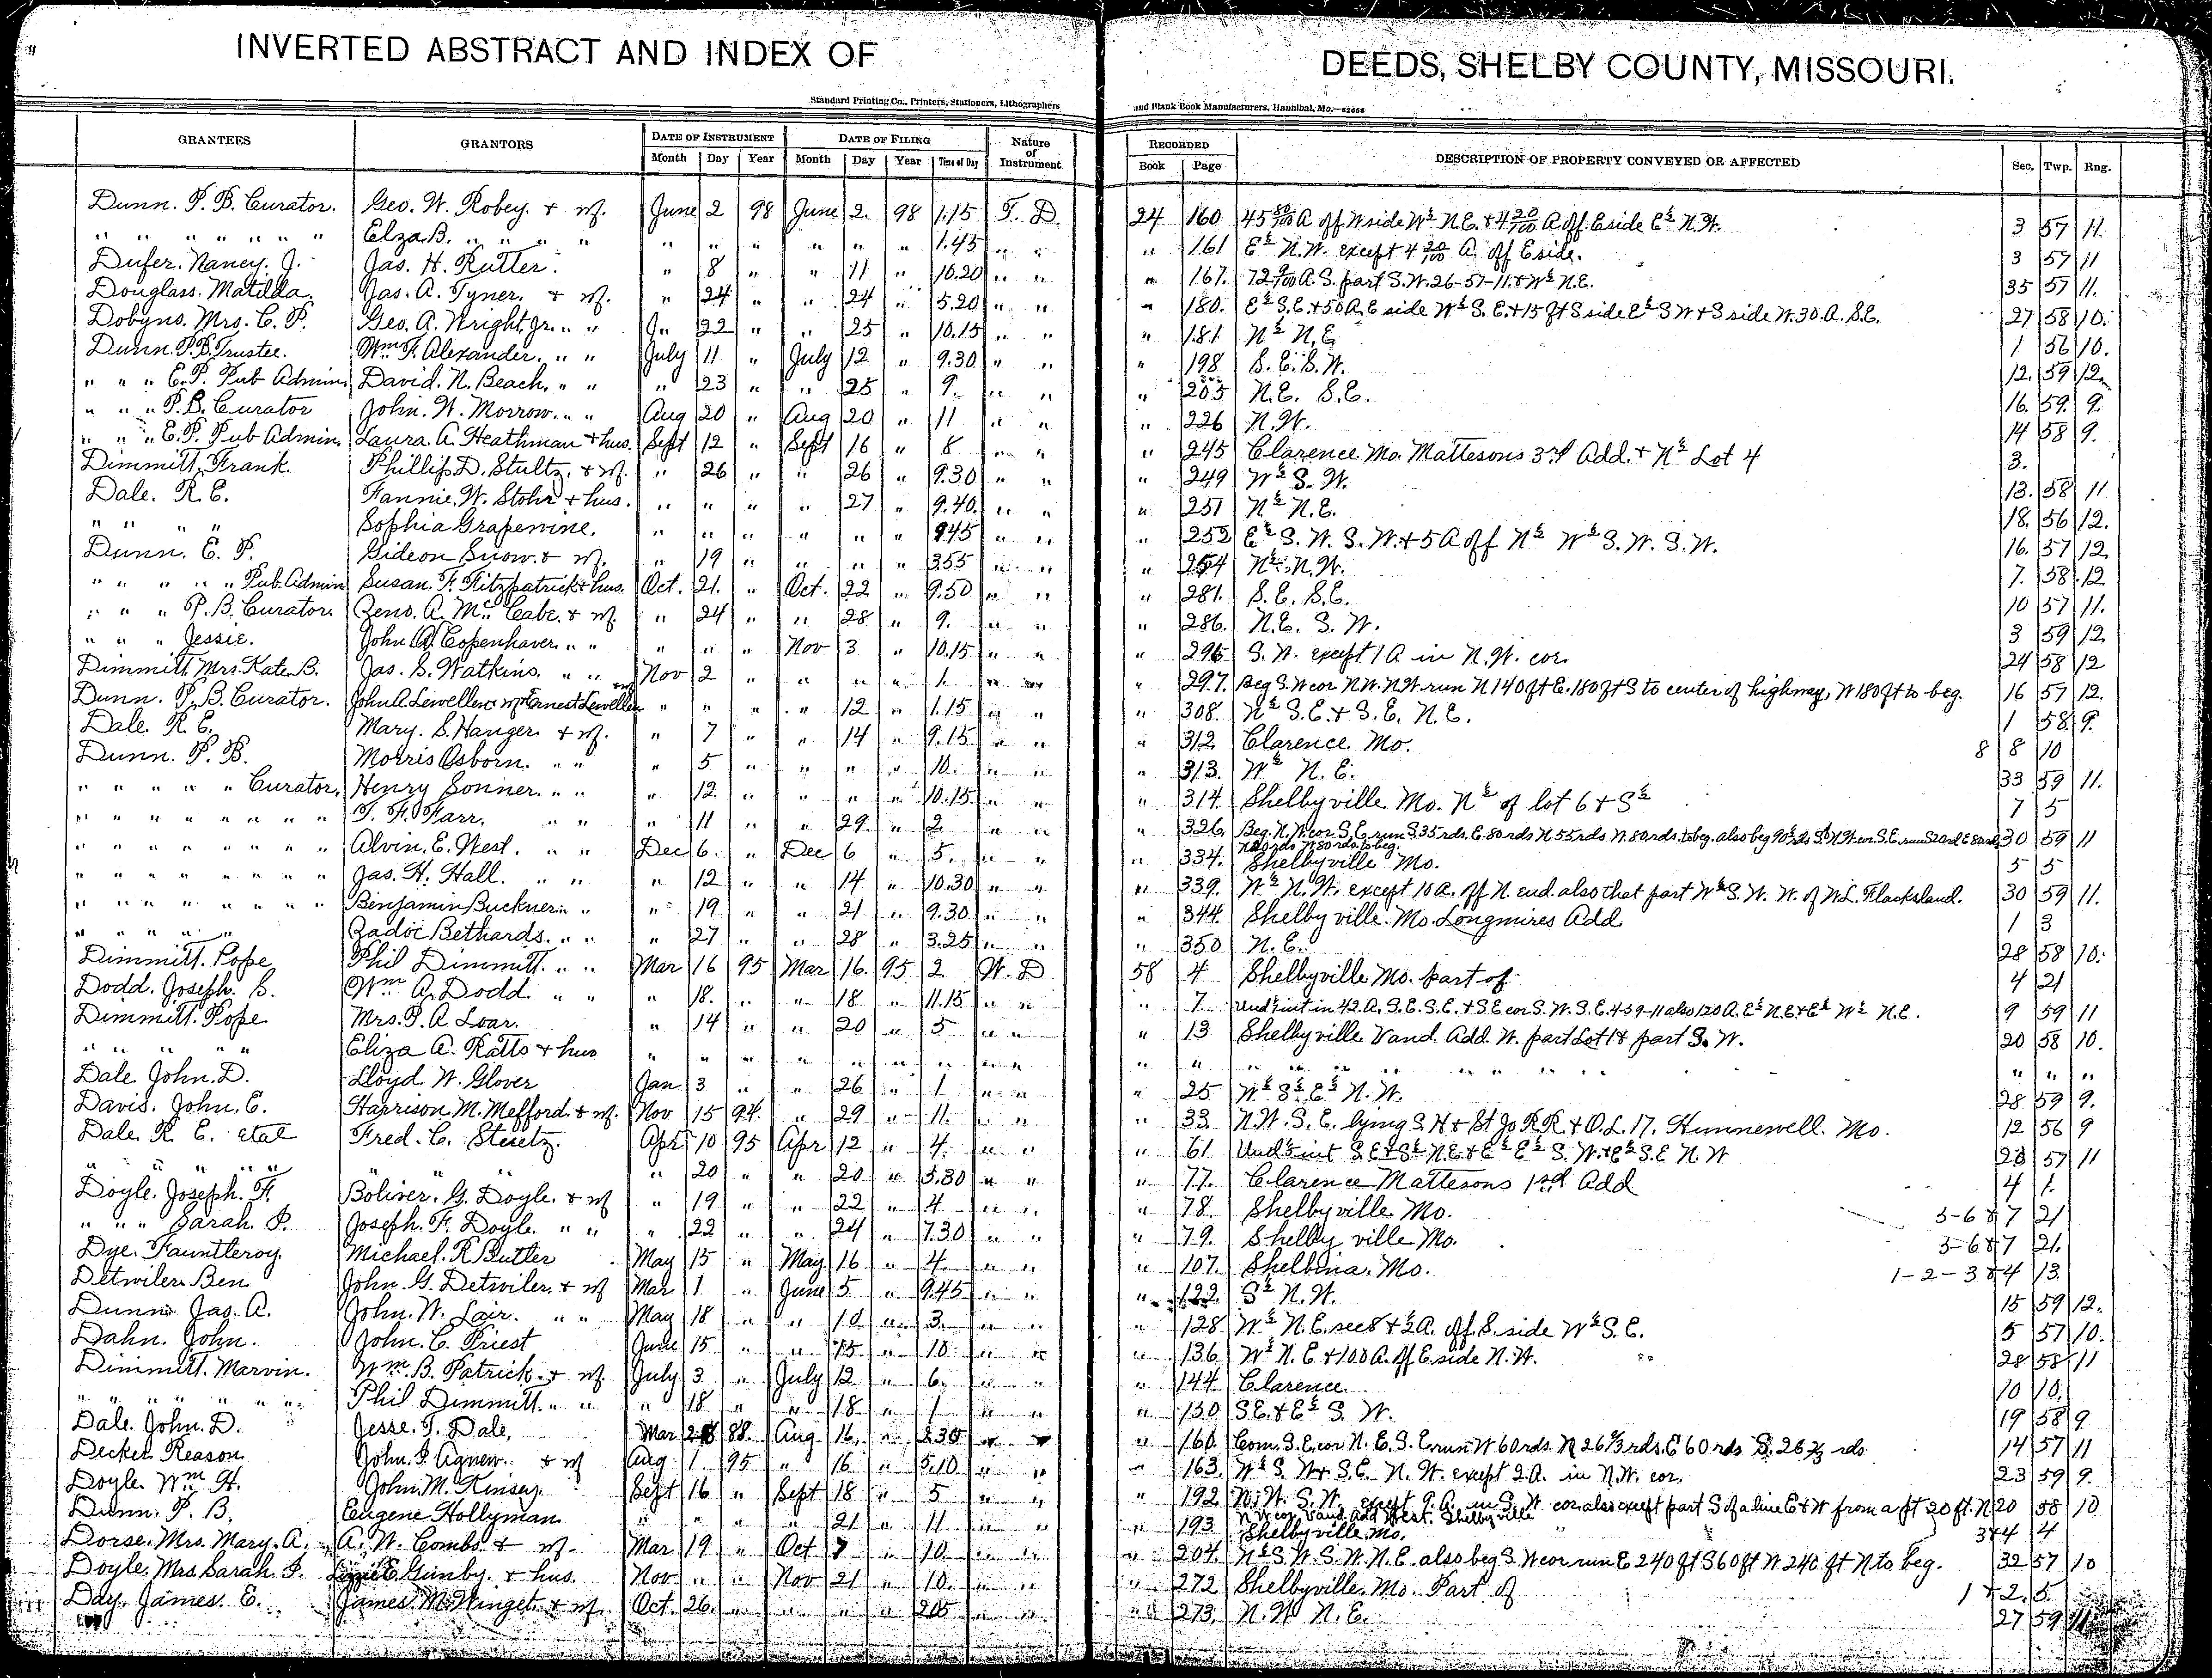 INVERTED ABSTRACT AND INDEX OF DEEDS, SHELBY COUNTY, MISSOURI.
Standard Printing Co., Printers, Stationers, Lithographers and Blank Book Manufacturers, Hannibal, Mo.—62656
GRANTEES GRANTORS DATE OF INSTRUMENT DATE OF FILING Nature of Instrument RECORDED DESCRIPTION OF PROPERTY CONVEYED OR AFFECTED Sec. Twp. Rng.
Month Day Year Month Day Year Time of Day Book Page
Dunn. P. B. Curator. Geo. W. Robey. & wf. June 2 98 June 2. 98 1.15 T. D. 24 160 45 80/100 A off W side W½ N.E. & 4 20/100 A off E side E½ N.W. 3 57 11.
" " " " " " " Elza B. " " " " " " " " " " 1.45 " " " 161 E½ N.W. except 4 20/100 A. off E side. 3 57 11
Dufer. Nancy. J. Jas. H. Rutter. " 8 " " 11 " 10.20 " " " 167. 72 9/100 A. S. part S.W. 26-57-11. & W½ N.E. 35 57 11.
Douglass. Matilda. Jas. A. Tyner. & wf. " 24 " " 24 " 5.20 " " " 180. E½ S.E. & 50 A. E side W½ S. E. & 15 ft S side E½ S W & S side W. 30. A. S.E. 27 58 10.
Dobyns. Mrs. C. P. Geo. A. Wright. Jr. " " Ju 22 " " 25 " 10.15 " " " 181. N½ N.E 1 56 10.
Dunn. P. B. Trustee. Wm. F. Alexander. " " July 11 " July 12 " 9.30 " " " 198 S. E. S. W. 12. 59 12.
" " " E. P. Pub Admin. David. N. Beach. " " " 23 " " 25 " 9. " " " 205 N. E. S. E. 16. 59. 9.
" " " P. B. Curator John. W. Morrow. " " Aug 20 " Aug 20 " 11 " " " 226 N. W. 14 58 9.
" " " E. P. Pub Admin. Laura. A. Heathman & hus. Sept 12 " Sept 16 " 8 " " " 245 Clarence Mo. Mattesons 3rd Add. & N½ Lot 4 3.
Dimmitt. Frank. Phillip D. Stultz. & wf. " 26 " " 26 " 9.30 " " " 249 W½ S. W. 13. 58 11
Dale. R. E. Fannie. W. Stohr & hus. " " " " 27 " 9.40. " " " 251 N½ N. E. 18. 56 12.
" " " " Sophia Grapewine. " " " " " " 945 " " " 252 E½ S. W. S. W. & 5 A off N½ W½ S. W. S. W. 16. 57 12.
Dunn. E. P. Gideon Snow. & wf. " 19 " " " " 3.55 " " " 254 N½ N. W. 7. 58. 12
" " " " " Pub. Admin Susan. F. Fitzpatrick & hus. Oct. 21. " Oct. 22 " 9.50 " " " 281. S. E. S. E. 10 57 11.
" " " P. B. Curator. Zeno. A. McCabe. & wf. " 24 " " 28 " 9. " " " 286. N. E. S. W. 3 59 12
" " " Jessie. John Copenhaver. " " " " " Nov 3 " 10.15 " " " 296 S. W. except 1 A in N. W. cor. 24 58 12
Dimmitt. Mrs. Kate. B. Jas. S. Watkins. " " Nov 2 " " " " 1 " " " 297. Beg S. W cor N.W. N.W run N 140 ft E. 180 ft S to center of highway, W 180 ft to beg. 16 57 12.
Dunn. P. B. Curator. John A. Lewellen & wf & Ernest Lewellen " " " " 12 " 1.15 " " " 308. N½ S.E. & S. E. N. E. 1 58 9.
Dale. R. E. Mary. S. Hanger. & wf. " 7 " " 14 " 9.15 " " " 312 Clarence Mo. 8 8 10
Dunn. P. B. Morris Osborn. " " " 5 " " " " 10. " " " 313. W½ N. E. 33 59 11.
" " " " " Curator. Henry Sonner. " " " 12. " " " " 10.15 " " " 314. Shelbyville Mo. N½ of lot 6 & S½ 7 5
" " " " " " " " T. F. Farr. " " " 11 " " 29. " 2. " " " 326. Beg. N. W. cor. S. E. run S. 35 rds. E. 80 rds N 55 rds W. 80 rds. to beg. also beg 90½ rds S. N.W. cor. S. E. run S 20 rd E 80 rds 30 59 11
N 20 rds W 80 rds. to beg.
" " " " " " " " Alvin. E. West. " " Dec 6. " Dec 6 " 5. " " " 334. Shelbyville Mo. 5 5
" " " " " " " " Jas. H. Hall. " " " 12 " " 14 " 10.30 " " " 339. W½ N. W. except 10 A. off N. end. also that part W½ S. W. W. of N. L. Flacks land. 30 59 11.
" " " " " " " " Benjamin Buckner. " " " 19 " " 21 " 9.30 " " " 344 Shelbyville. Mo. Longmires Add. 1 3
" " " " " Zadoc Bethards. " " " 27 " " 28 " 3.25 " " " 350 N. E. 28 58 10.
Dimmitt. Pope Phil Dimmitt. " " Mar 16 95 Mar 16. 95 2 W. D 58 4 Shelbyville Mo. part of. 4 21
Dodd. Joseph. S. Wm A. Dodd. " " " 18. " " 18 " 11.15 " " " 7 Und ½ int in 42. A. S. E. S. E. & S E cor S. W. S. E. 4-59-11 also 120 A. E½ N. E & E½ W½ N.E. 9 59 11
Dimmitt. Pope Mrs. P. A Loar. " 14 " " 20 " 5 " " " 13 Shelbyville Vand. Add. W. part Lot 1 & part S. W. 20 58 10.
" " " " Eliza A. Ratts & hus " " " " " " " " " " " " " " "
Dale. John. D. Lloyd. W. Glover Jan 3 " " 26 " 1 " " " 25 W½ S½ E½ N. W. 28 59 9.
Davis. John. E. Harrison M. Mefford. & wf. Nov 15 94. " 29 " 11. " " " 33 N.W. S. E. lying S. H & St Jo R.R. & O. L. 17. Hunnewell. Mo. 12 56 9
Dale R. E. etal Fred. C. Stuetz. Apr 10 95 Apr 12 " 4. " " " 61 Und ½ int S.E & S½ N.E. & E½ E½ S. W. & E½ S.E N. W 28 57 11
" " " " " " " " 20 " " 20 " 5.30 " " " 77. Clarence Mattesons 1st Add 4 1.
Doyle. Joseph. F. Boliver. G. Doyle. & wf " 19 " " 22 " 4 " " " 78. Shelbyville. Mo. 5-6 & 7 21
" " " Sarah. P. Joseph. F. Doyle. " " " 22 " " 24 " 7.30 " " " 79. Shelby ville Mo. 5-6 & 7 21.
Dye. Fauntleroy. Michael. R Butler May 15 " May 16 " 4. " " " 107. Shelbina. Mo. 1-2-3 & 4 13.
Detwiler. Ben John. G. Detwiler. & wf Mar 1. " June 5 " 9.45 " " " 122. S½ N. W. 15 59 12.
Dunn. Jas. A. John. W. Lair. " " May 18 " " 10 " 3. " " " 128 W½ N. E. sec 8 & 2 A. off S. side W½ S. E. 5 57 10.
Dahn. John. John. C. Priest June 15 " " 15 " 10 " " " 136 W½ N. E & 100 A. off E side N. W. 28 58 11
Dimmitt. Marvin. Wm. B. Patrick. & wf. July 3 " July 12 " 6. " " " 144. Clarence. 10 10.
" " " " " " Phil Dimmitt. " " " 18 " " 18 " 1 " " " 150 S.E. & E½ S. W. 19 58 9
Dale. John. D. Jesse. T. Dale. Mar 28 88. Aug 16. " 2.30 " " " 160. Com. S. E. cor N. E. S. E. run W 60 rds. N 26⅔ rds. E 60 rds S. 26⅔ rds 14 57 11
Decker. Reason John. P. Agnew. & wf Aug 1 95 " 16 " 5.10 " " " 163 W½ S. W & S.E. N. W. except 2. A. in N.W. cor. 23 59 9.
Doyle. Wm H. John. M. Kinsey. Sept 16 " Sept 18 " 5 " " " 192 N. W. S. W. except 9. A. in S. W cor. also except part S of a line E & W from a pt 20 ft. N 20 58 10
N W cor Vand. add West. Shelbyville
Dunn. P. B. Eugene Hollyman " " " " 21 " 11 " " " 193 Shelbyville Mo. 3 & 4 4
Dorse. Mrs. Mary. A. A. W. Combs. & wf. Mar 19 " Oct 7 " 10 " " " 204. N½ S. W. S. W. N. E. also beg S. W cor run E 240 ft S 60 ft W 240. ft N to beg. 32 57 10
Doyle. Mrs Sarah. P. E. Gunby. & hus. Nov " " Nov 21 " 10. " " " 272 Shelbyville. Mo. Part of 1 & 2. 5.
Day. James. E. James. M. Winget. & wf. Oct. 26. " " " " 2.05 " " " 273. N. W N. E. 27 59 11